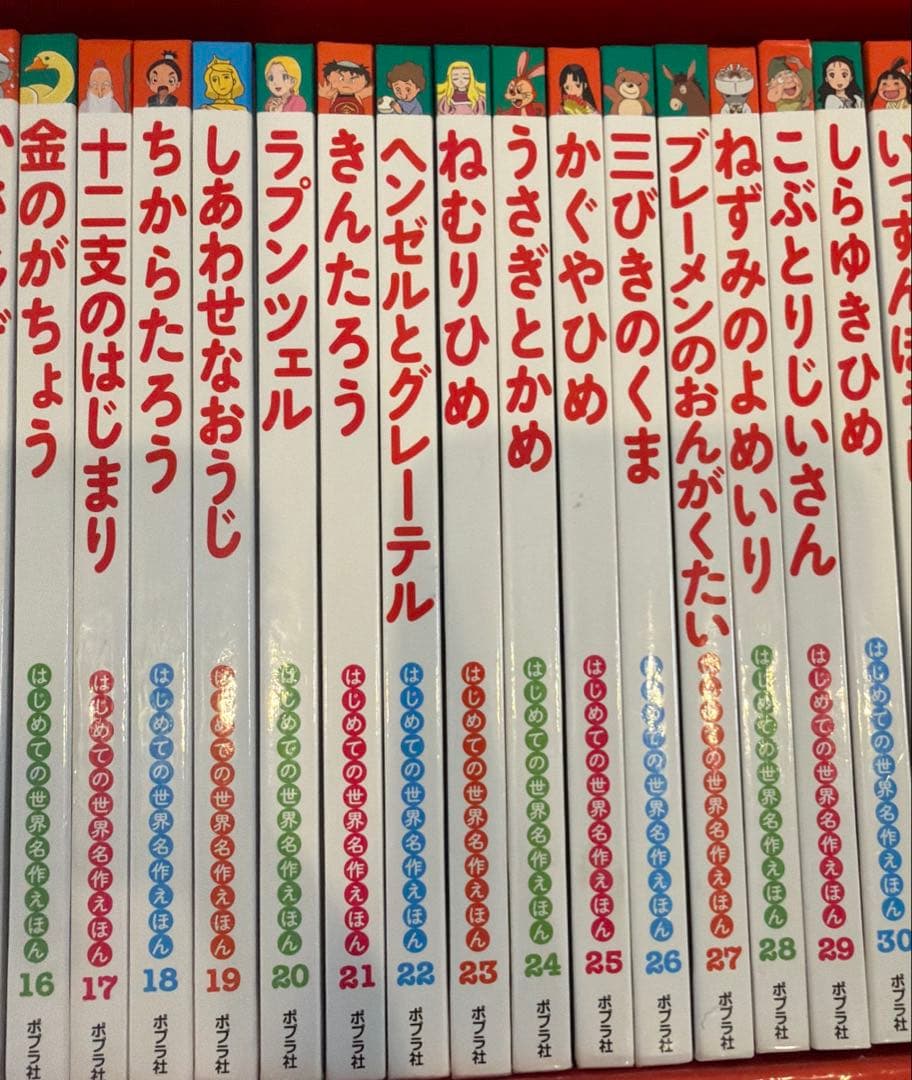 金のがちょう
はじめての世界名作えほん
16
ポプラ社
十二支のはじまり
はじめての世界名作えほん
17
ポプラ社
ちからたろう
はじめての世界名作えほん
18
ポプラ社
しあわせなおうじ
はじめての世界名作えほん
19
ポプラ社
ラプンツェル
はじめての世界名作えほん
20
ポプラ社
きんたろう
はじめての世界名作えほん
21
ポプラ社
ヘンゼルとグレーテル
はじめての世界名作えほん
22
ポプラ社
ねむりひめ
はじめての世界名作えほん
23
ポプラ社
うさぎとかめ
はじめての世界名作えほん
24
ポプラ社
かぐやひめ
はじめての世界名作えほん
25
ポプラ社
三びきのくま
はじめての世界名作えほん
26
ポプラ社
ブレーメンのおんがくたい
はじめての世界名作えほん
27
ポプラ社
ねずみのよめいり
はじめての世界名作えほん
28
ポプラ社
こぶとりじいさん
はじめての世界名作えほん
29
ポプラ社
しらゆきひめ
はじめての世界名作えほん
30
ポプラ社